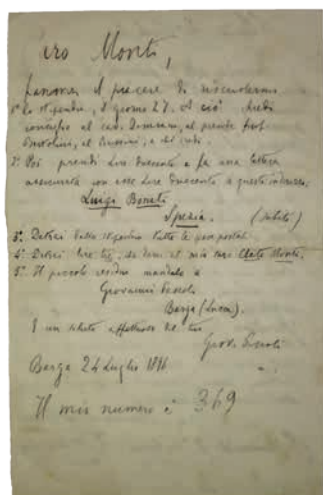 Caro Monti,
fammi il piacere di riscuotermi
1º Lo stipendio, il giorno 27. A ciò chiedi
consiglio al cav. Damiani, al prof.
Bertolini, al
2º Poi prendi Lire duecento e fa una lettera
assicurata con esse Lire duecento a questo indirizzo:
Luigi Bonati
Spezia. (subito)
3º Detrai dallo stipendio tutte le spese postali.
4º Detrai lire da dare al mio caro Monti.
5º Il piccolo residuo mandalo a
Giovanni Pascoli
Barga (Lucca).
E un saluto affettuoso dal tuo
Giov. Pascoli
Barga 24 Luglio 1896
Il mio numero è 369